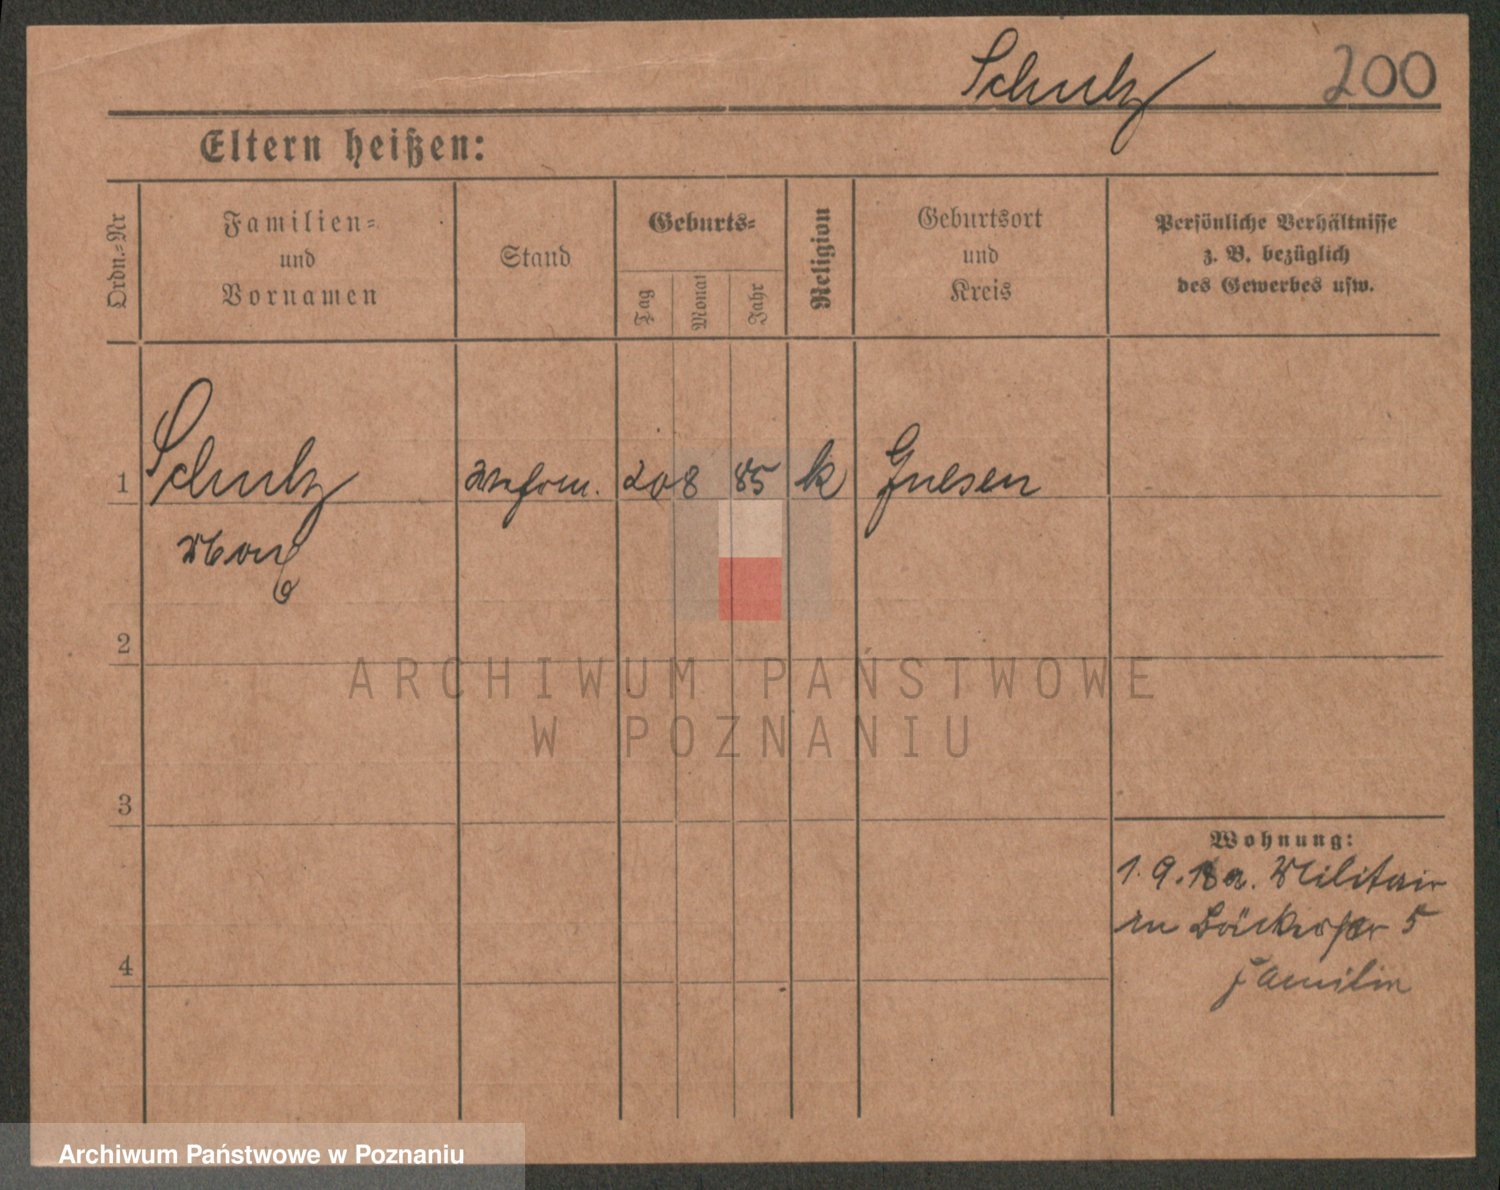 Schulz 200
Eltern heißen:
Ordn.-Nr
Familien-
und
Vornamen
Stand
Geburts-
Tag
Monat
Jahr
Religion
Geburtsort
und
Kreis
Persönliche Verhältnisse
z. B. bezüglich
des Gewerbes usw.
1 Schulz 20 8 85 k Gnesen
Max
2
3
4
Wohnung:
1.9.18 a. Militair
in Bäckerstr 5
Familie
ARCHIWUM PAŃSTWOWE
W POZNANIU
Archiwum Państwowe w Poznaniu